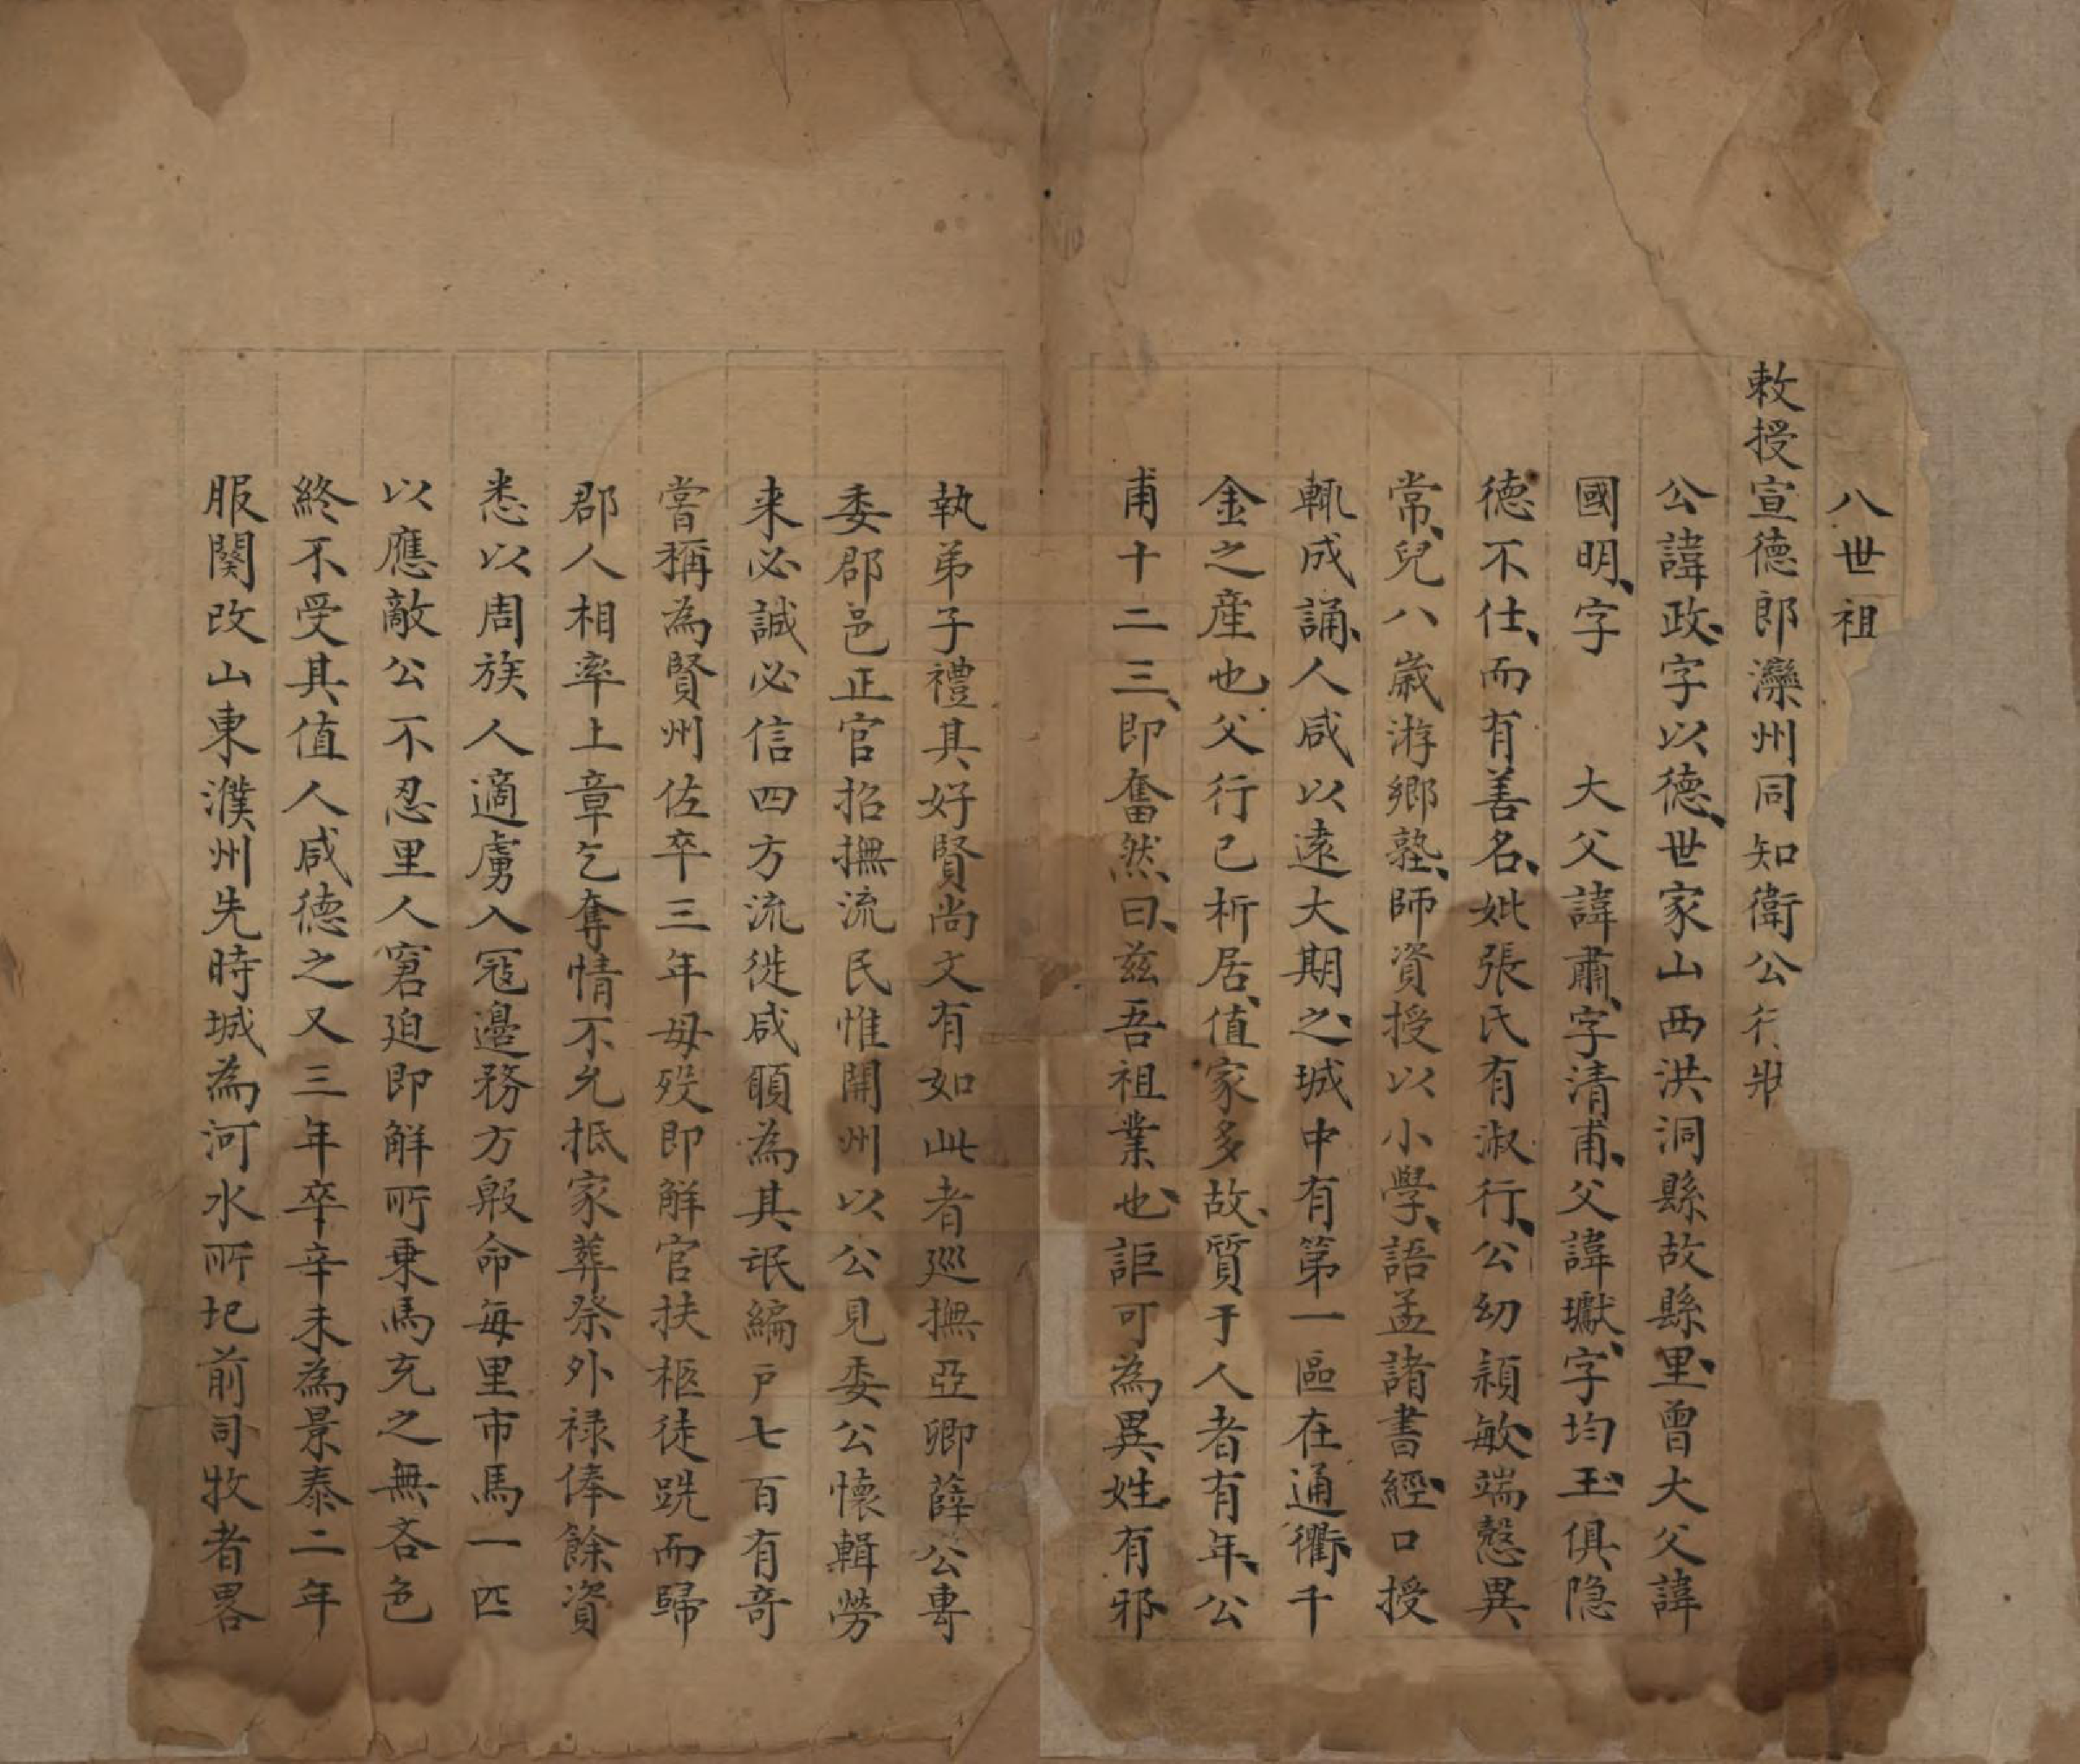 八世祖
敕授宣德郎灤州同知衛公行狀
公諱政、字以德、世家山西洪洞縣故縣里、曾大父諱
國明、字　　大父諱肅、字清甫、父諱瓛、字均玉、俱隐
德不仕、而有善名、妣張氏有淑行、公幼頴敏端慤異
常、兒八歲游鄉塾、師資授以小學、語孟諸書經、口授
輒成誦、人咸以遠大期之、城中有第一區在通衢千
金之産也父行已析居、值家多故、質于人者有年、公
甫十二三、即奮然、曰、兹吾祖業也、詎可為異姓有邪
執弟子禮其好賢尚文有如此者巡撫亞卿薛公專
委郡邑正官招撫流民惟開州以公見委公懷輯勞
来必誠必信四方流徙咸願為其氓編戸七百有奇
嘗稱為賢州佐卒三年母歿即觧官扶柩徒跣而歸
郡人相率上章乞奪情不允抵家葬祭外禄俸餘資
悉以周族人適虜入冦邉務方殷命每里市馬一匹
以應敵公不忍里人窘廹即觧所乗馬充之無吝色
終不受其值人咸德之又三年卒辛未為景泰二年
服闋改山東濮州先時城為河水所圮前司牧者畧